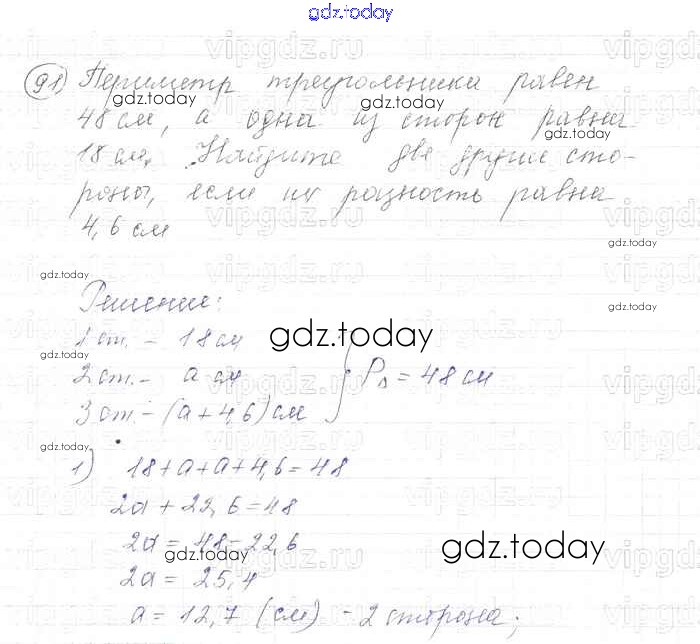 gdz.today
91) Периметр треугольника равен
gdz.today gdz.today
48 см, а одна из сторон равна
gdz.today
18 см. Найдите две другие сто-
роны, если их разность равна
4,6 см
gdz.today
gdz.today
Решение:
gdz.today
1 ст. - 18 см
gdz.today
gdz.today
2 ст. - a см } PΔ = 48 см
3 ст. - (a + 4,6) см
gdz.today
1) 18 + a + a + 4,6 = 48
2a + 22,6 = 48
2a = 48 - 22,6
gdz.today gdz.today
2a = 25,4
a = 12,7 (см) - 2 сторона.